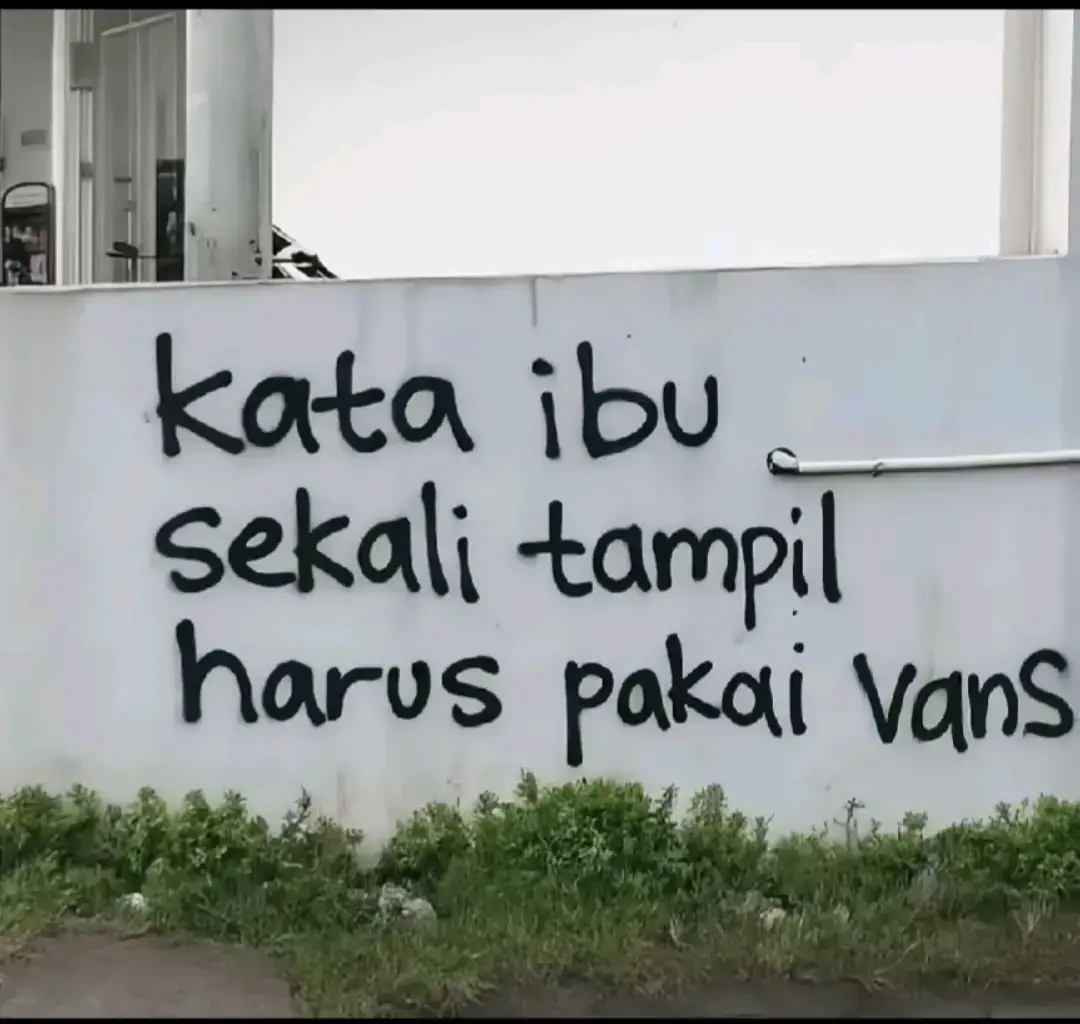 kata ibu
sekali tampil
harus pakai vans